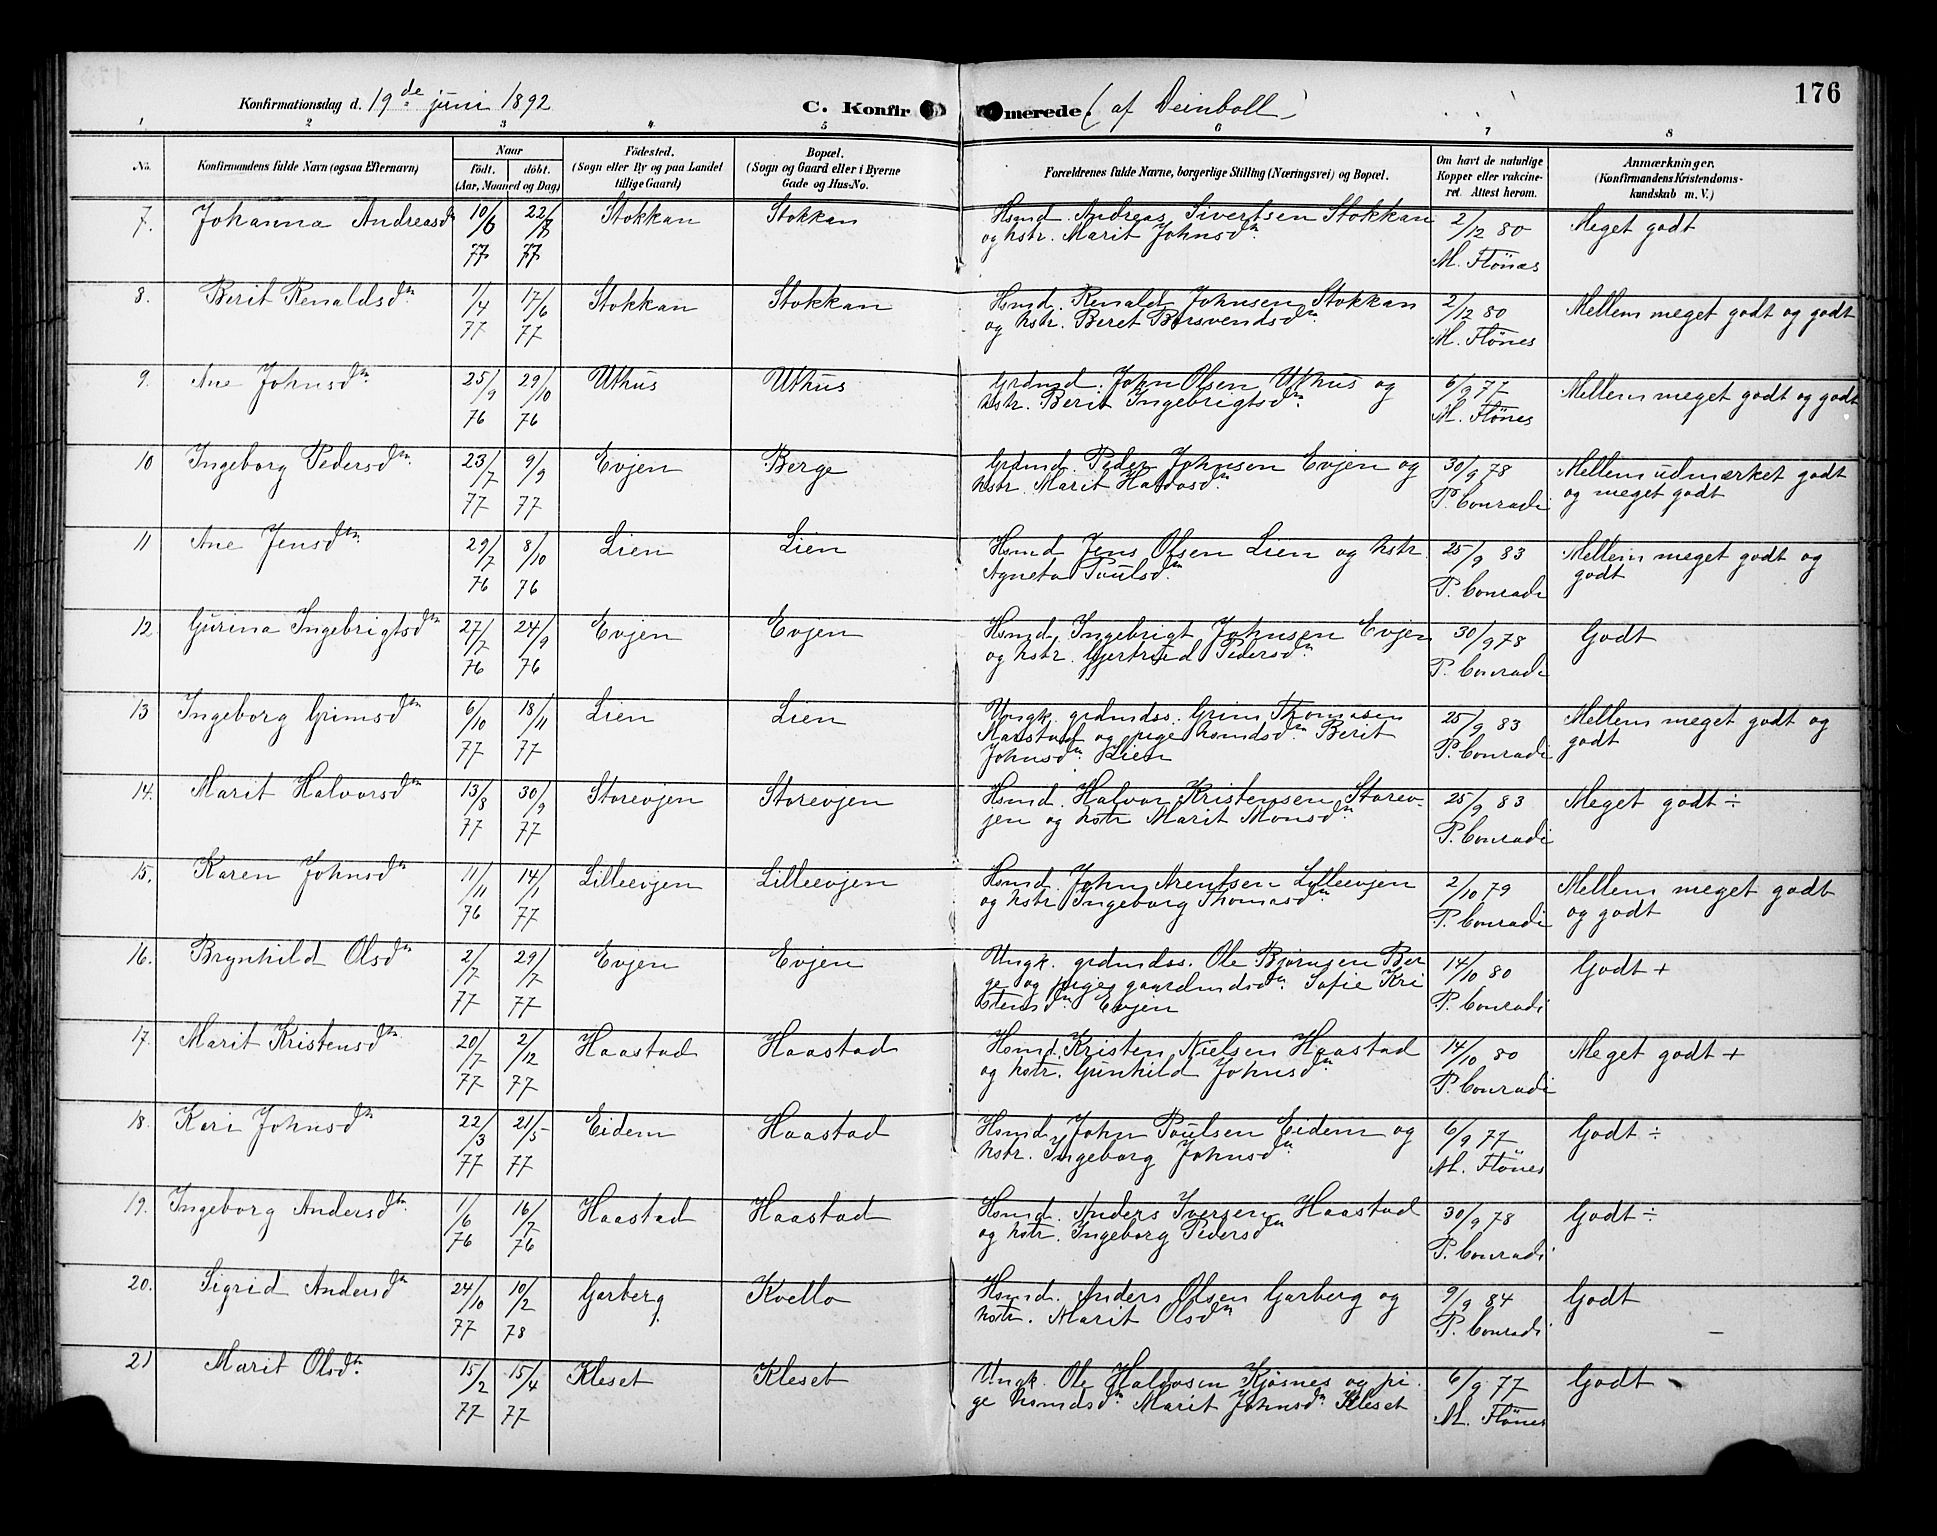 176
Konfirmationsdag d. 19de juni 1892
C. Konfirmerede (af Deinboll)
1 2 3 4 5 6 7 8
No. Konfirmandens fulde Navn (ogsaa Efternavn) Naar födt. döbt. (Aar, Maaned og Dag) Födested. (Sogn eller By og paa Landet tillige Gaard) Bopæl. (Sogn og Gaard eller i Byerne Gade og Hus-No. Forældrenes fulde Navne, borgerlige Stilling (Næringsvei) og Bopæl. Om havt de naturlige Kopper eller vakcineret. Attest herom. Anmærkninger. (Konfirmandens Kristendomskundskab m. V.)
7. Johanna Andreasdtr 10/6 77 22/7 77 Stokkan Stokkan Hsmd. Andreas Sivertsen Stokkan
og hstr. Marit Johnsdtr. 2/12 80 M. Flönæs Meget godt
8. Berit Renaldsdtr 1/4 77 17/6 77 Stokkan Stokkan Hsmd. Renald Johnsen Stokkan
og hstr. Beret Børsvendsdtr. 2/12 80 M. Flönes Mellem meget godt og godt
9. Ane Johnsdtr. 25/9 76 29/10 76 Uthus Uthus Grdmd. John Olsen Uthus og
hstr. Berit Ingebrigtsdtr. 6/9 77 M. Flönes Mellem meget godt og godt
10 Ingeborg Pedersdtr. 23/7 77 9/9 77 Evjen Berge Grdmd. Peder Johnsen Evjen og
hstr. Marit Haldosdtr. 30/9 78 P. Conradi Mellem udmærket godt
og meget godt
11 Ane Jensdtr. 29/7 76 8/10 76 Lien Lien Hsmd Jens Olsen Lien og hstr.
Agneta Poulsdtr 25/9 83 P. Conradi Mellem meget godt og
godt
12 Gurina Ingebrigtsdtr 27/7 76 24/9 76 Evjen Evjen Hsmd. Ingebrigt Johnsen Evjen
og hstr. Gjertrud Pedersdtr. 30/9 78 P. Conradi Godt
13 Ingeborg Grimsdtr 6/10 77 18/11 77 Lien Lien Ungk. grdmdss. Grim Thomasen
og pige hsmdsdtr. Berit
Johnsdtr. Lien 25/9 83 P. Conradi Mellem meget godt og
godt
14. Marit Halvorsdtr 13/8 77 30/9 77 Storevjen Storevjen Hsmd. Halvor Kristensen Storev-
jen og hstr Marit Monsdtr 25/9 83 P. Conradi Meget godt ÷
15. Karen Johnsdtr 11/11 76 14/1 77 Lilleevjen Lilleevjen Hsmd. John Arentsen Lilleevjen
og hstr Ingeborg Thomasdtr. 2/10 79 P. Conradi Mellem meget godt
og godt
16. Brynhild Olsdtr 2/7 77 29/7 77 Evjen Evjen Ungk. grdmdss. Ole Bjørnsen Ber
ge og pige gaardmdsdtr. Sofie Kri
stensdtr Evjen 14/10 80 P. Conradi Godt +
17. Marit Kristensdtr 20/7 77 2/12 77 Haastad Haastad Hsmd. Kristen Nielsen Haastad
og hstr. Gunhild Johnsdtr. 14/10 80 P. Conradi Meget godt +
18. Kari Johnsdtr 22/3 77 21/5 77 Eidem Haastad Hsmd. John Poulsen Eidem og
hstr. Ingeborg Johnsdtr. 6/9 77 M. Flönes Godt ÷
19. Ingeborg Andersdtr. 1/6 76 16/7 76 Haastad Haastad Hsmd. Anders Iversen Haastad
og hstr. Ingeborg Pedersdtr 30/9 78 P. Conradi Godt ÷
20. Sigrid Andersdtr 24/10 77 10/2 78 Garberg Kvello Hsmd. Anders Olsen Garberg og
hstr. Marit Olsdtr 9/9 84 P. Conradi Godt
21 Marit Olsdtr. 15/2 77 15/4 77 Kleset Kleset Ungk. Ole Haldosen Kjøsnes og pi
ge hsmdsdtr Marit Johnsdtr Kleset 6/9 77 M. Flönes Godt